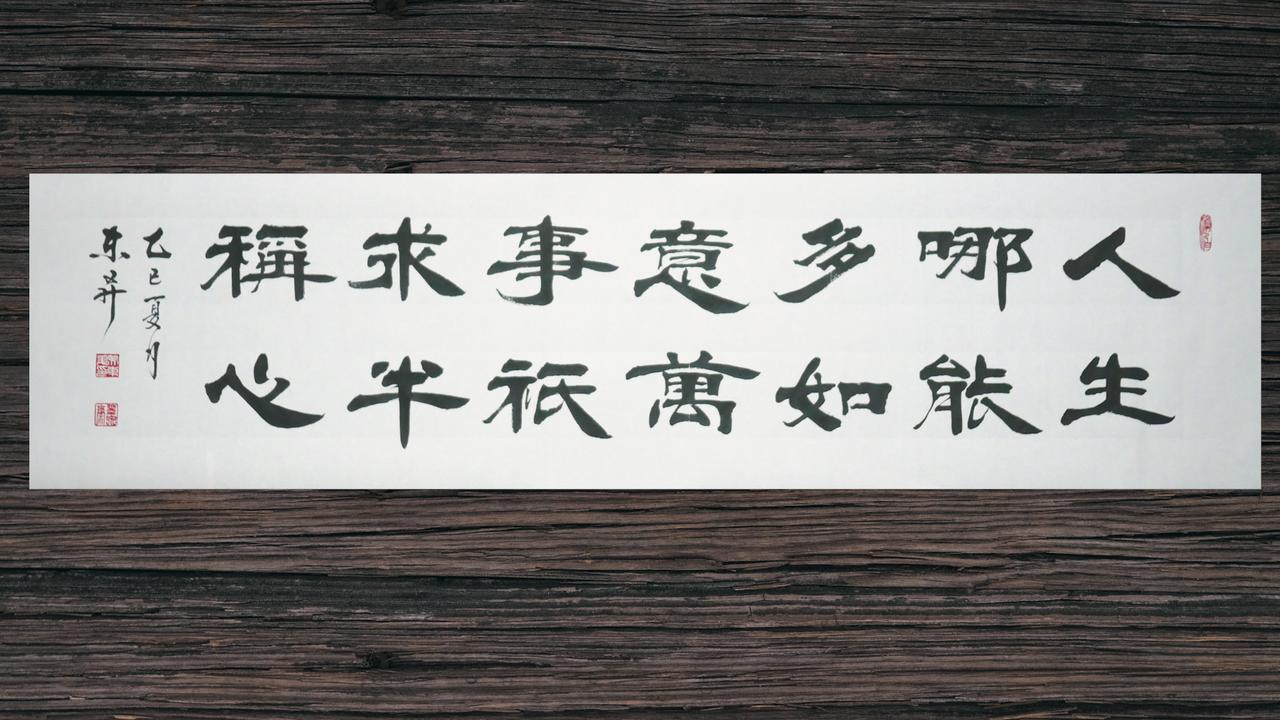 人生
哪能
多如
意萬
事祇
求半
稱心
乙巳夏月
东昇